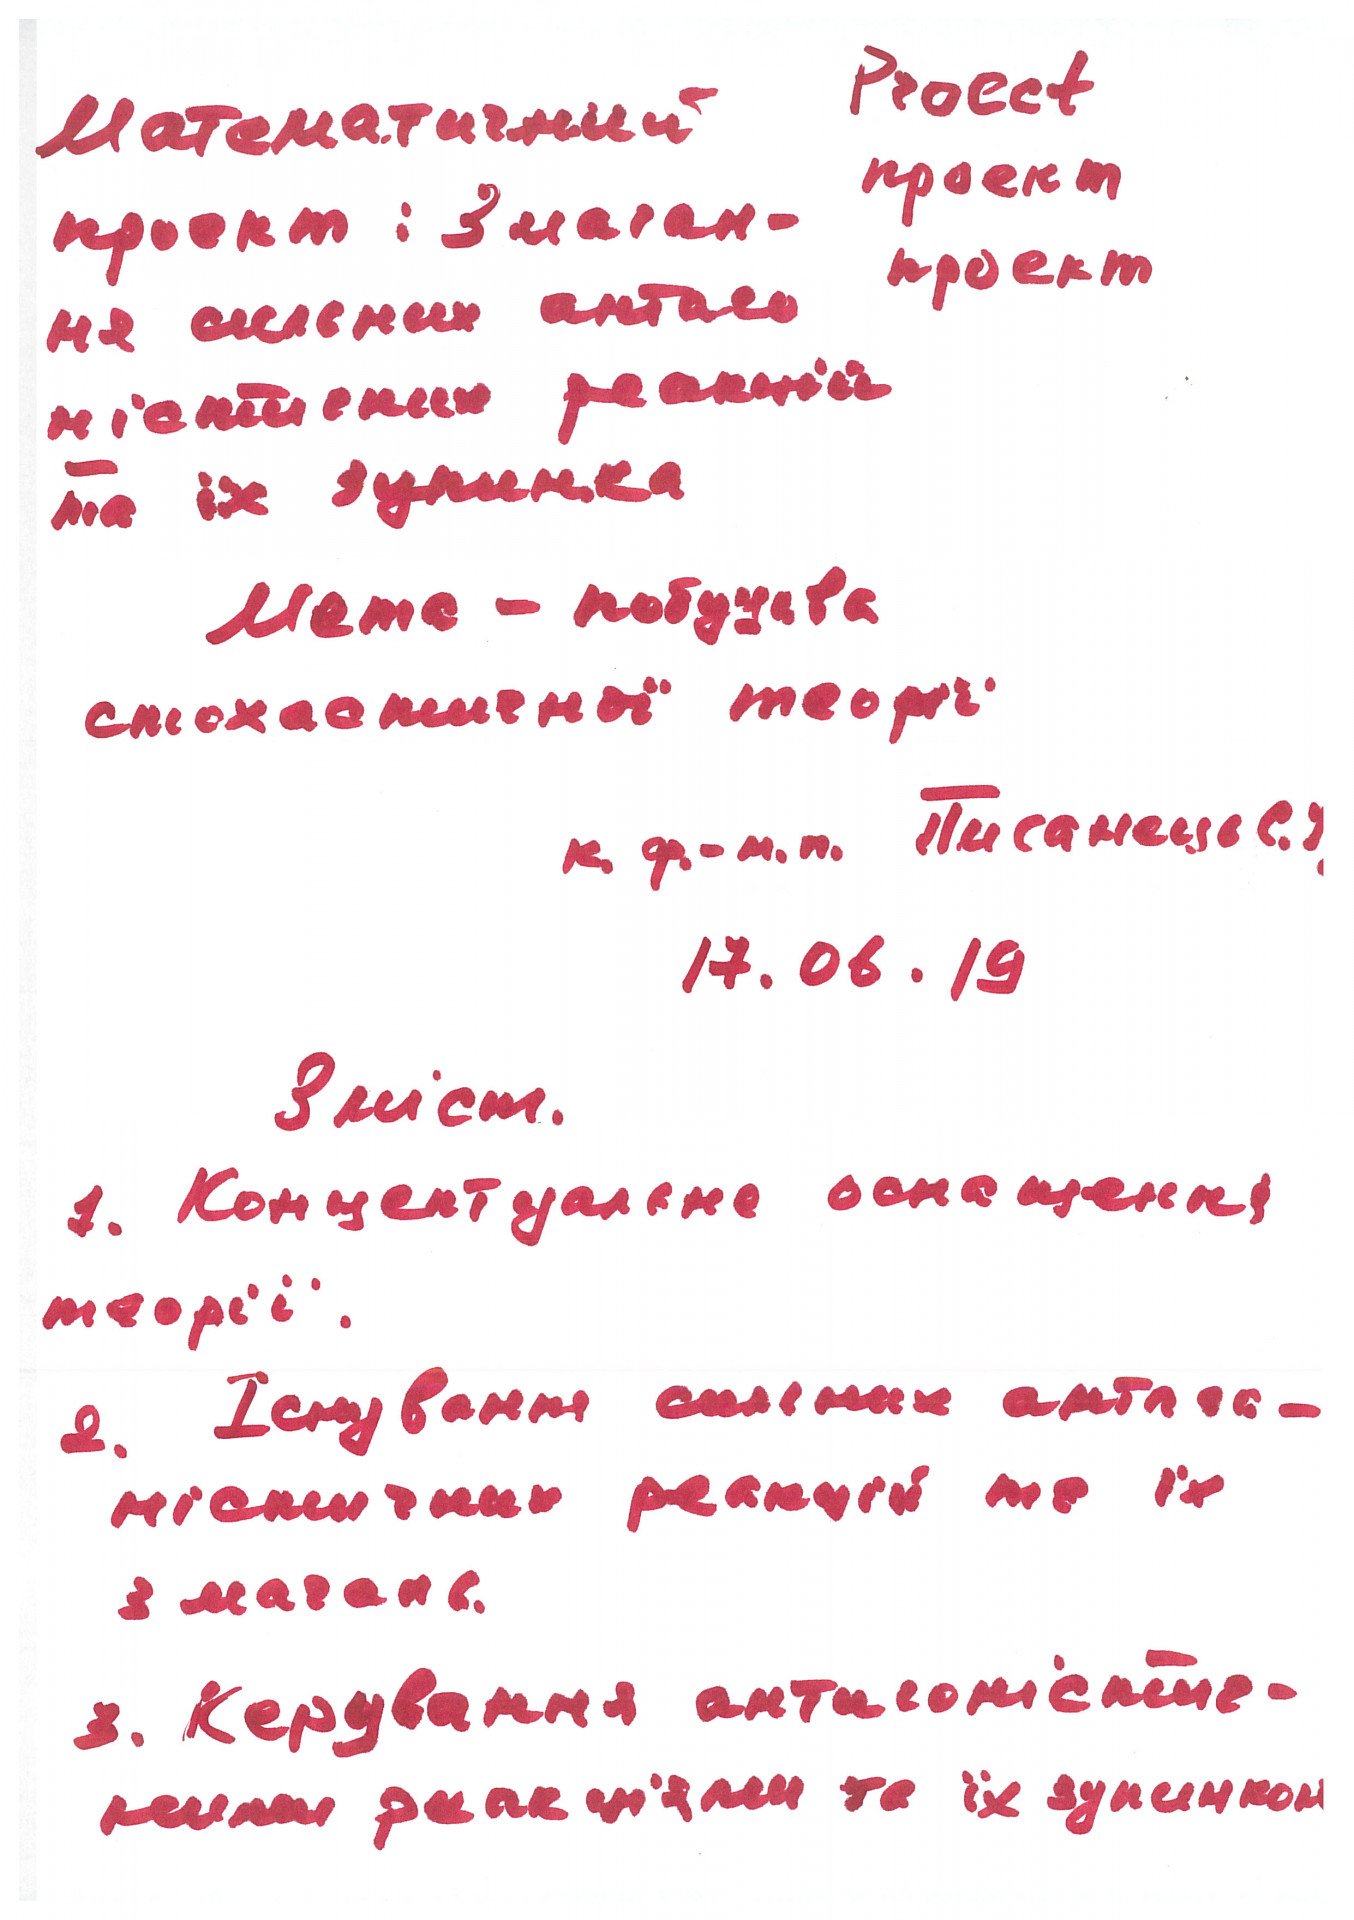 Математичний
проект: Змаган-
ня сильних антаго
ністичних реакцій
та їх зупинка
Proect
проект
проект
Мета - побудова
стохастичної теорії
к. ф.-м. н. Писанець Є.
17.06.19
Зміст.
1. Концептуальне оснащення
теорії.
2. Існування сильних антаго-
ністичних реакцій та їх
змагань.
3. Керування антагоністич-
ними реакціями та їх зупинкою